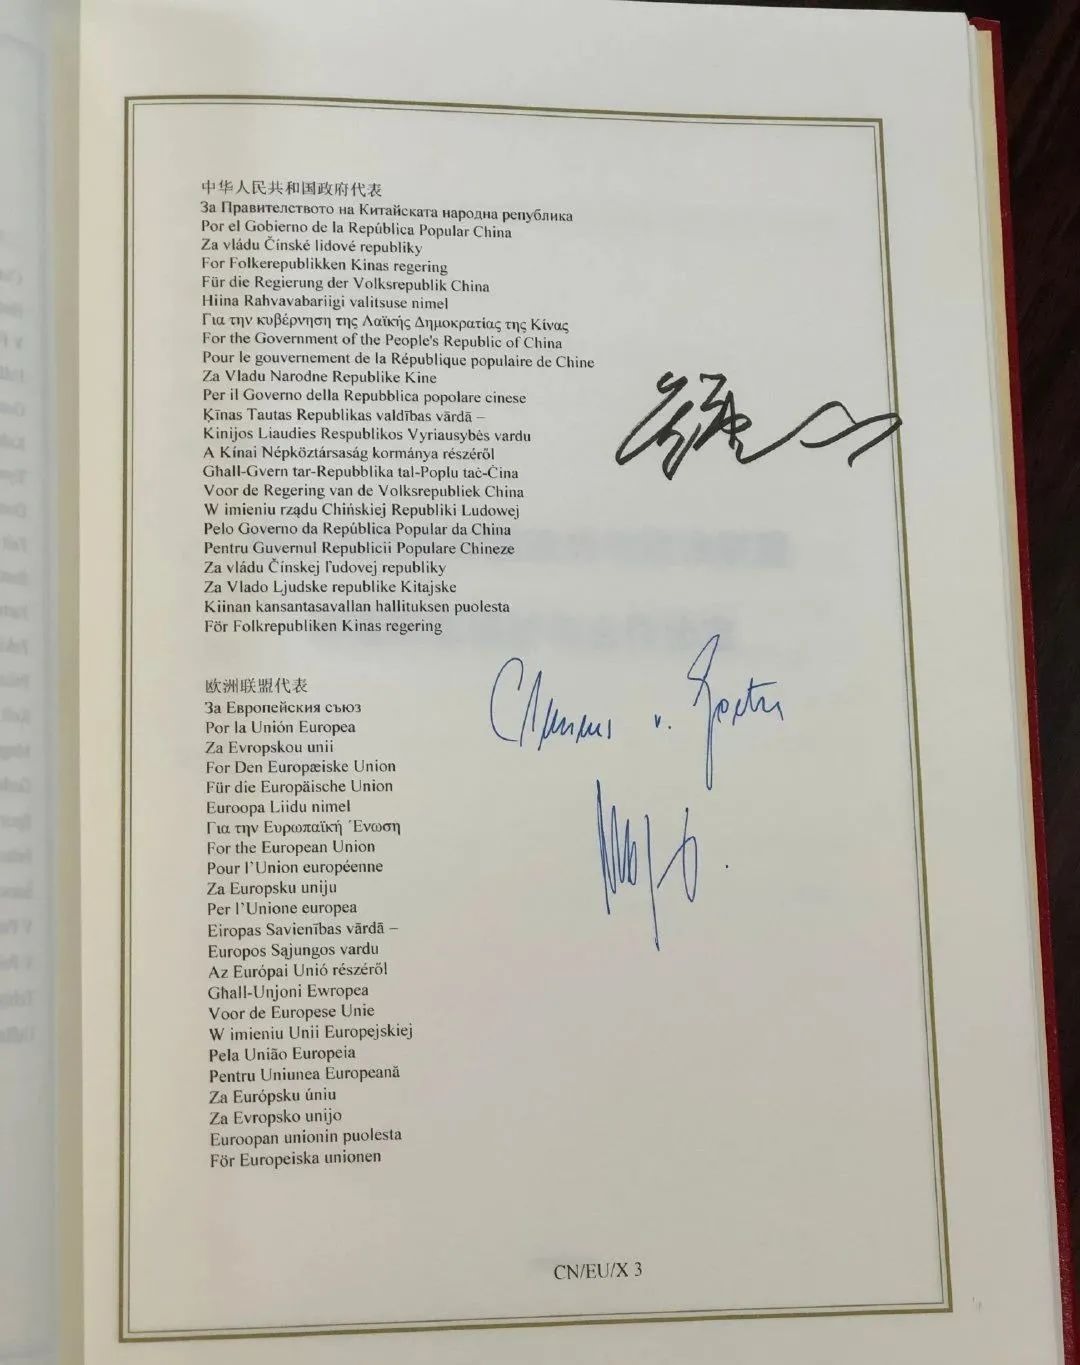 中华人民共和国政府代表
За Правителството на Китайската народна република
Por el Gobierno de la República Popular China
Za vládu Čínské lidové republiky
For Folkerepublikken Kinas regering
Für die Regierung der Volksrepublik China
Hiina Rahvavabariigi valitsuse nimel
Για την κυβέρνηση της Λαϊκής Δημοκρατίας της Κίνας
For the Government of the People's Republic of China
Pour le gouvernement de la République populaire de Chine
Za Vladu Narodne Republike Kine
Per il Governo della Repubblica popolare cinese
Ķīnas Tautas Republikas valdības vārdā –
Kinijos Liaudies Respublikos Vyriausybės vardu
A Kínai Népköztársaság kormánya részéről
Għall-Gvern tar-Repubblika tal-Poplu taċ-Ċina
Voor de Regering van de Volksrepubliek China
W imieniu rządu Chińskiej Republiki Ludowej
Pelo Governo da República Popular da China
Pentru Guvernul Republicii Populare Chineze
Za vládu Čínskej ľudovej republiky
Za Vlado Ljudske republike Kitajske
Kiinan kansantasavallan hallituksen puolesta
För Folkrepubliken Kinas regering
欧洲联盟代表
За Европейския съюз
Por la Unión Europea
Za Evropskou unii
For Den Europæiske Union
Für die Europäische Union
Euroopa Liidu nimel
Για την Ευρωπαϊκή Ένωση
For the European Union
Pour l'Union européenne
Za Europsku uniju
Per l'Unione europea
Eiropas Savienības vārdā –
Europos Sąjungos vardu
Az Európai Unió részéről
Għall-Unjoni Ewropea
Voor de Europese Unie
W imieniu Unii Europejskiej
Pela União Europeia
Pentru Uniunea Europeană
Za Európsku úniu
Za Evropsko unijo
Euroopan unionin puolesta
För Europeiska unionen
CN/EU/X 3